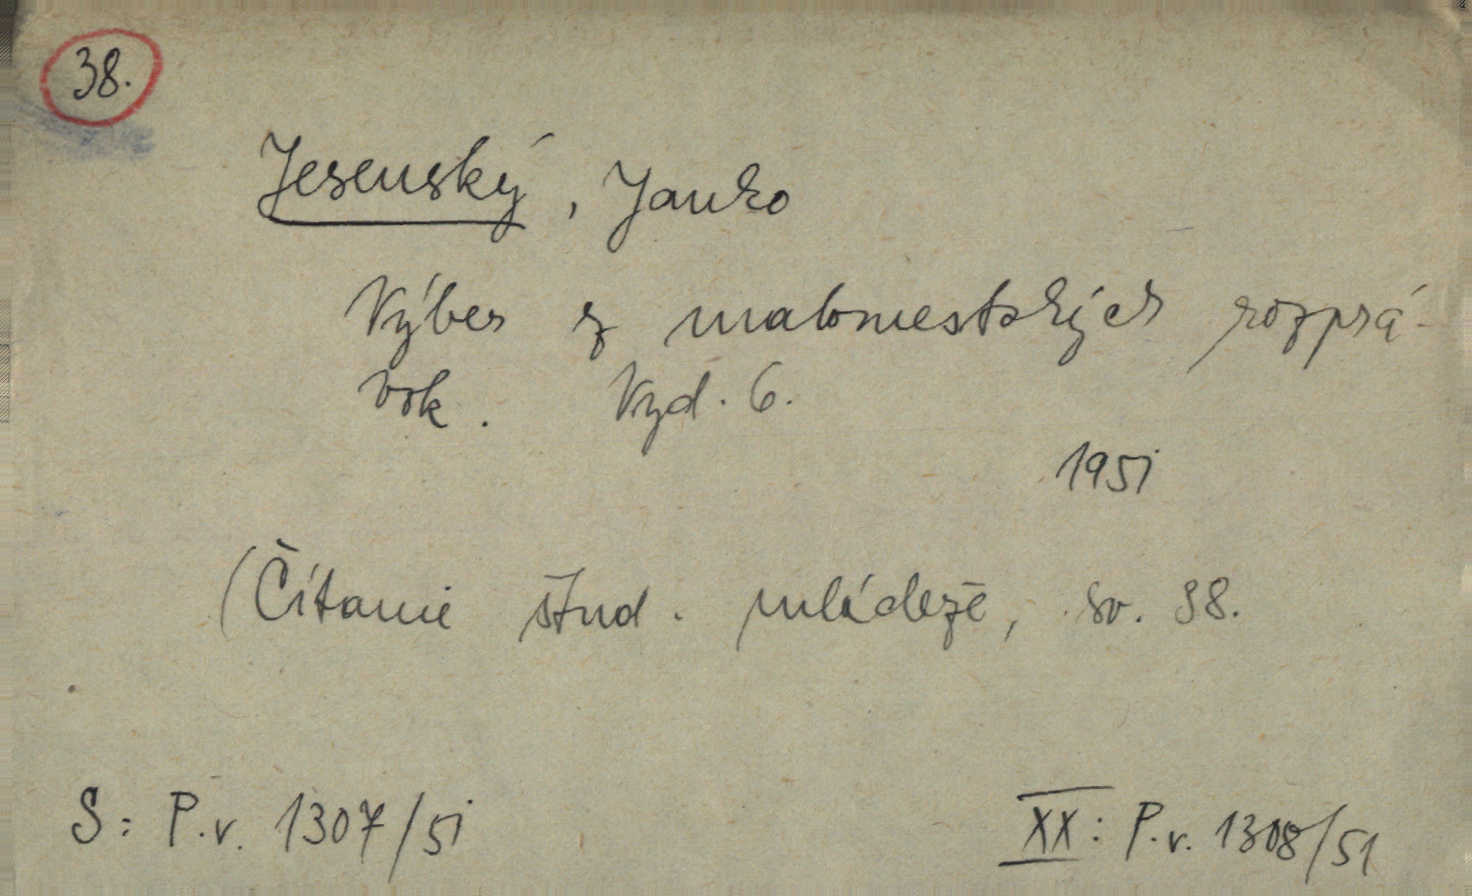 38.
Jesenský, Janko
Výber z malomestských rozprá-
vok. Vyd. 6.
1951
(Čítanie štud. mládeže, sv. 38.
S: P.v. 1307/51
XX: P.v. 1308/51